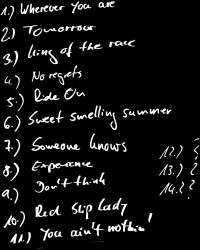 1.) Wherever you are
2.) Tomorrow
3.) King of the race
4.) No regrets
5.) Ride On
6.) Sweet smelling summer
7.) Someone knows
8.) Experience
9.) Don't think
10.) Red slip lady
11.) You ain't nothin'
12.)
13.) ?
14.) ?